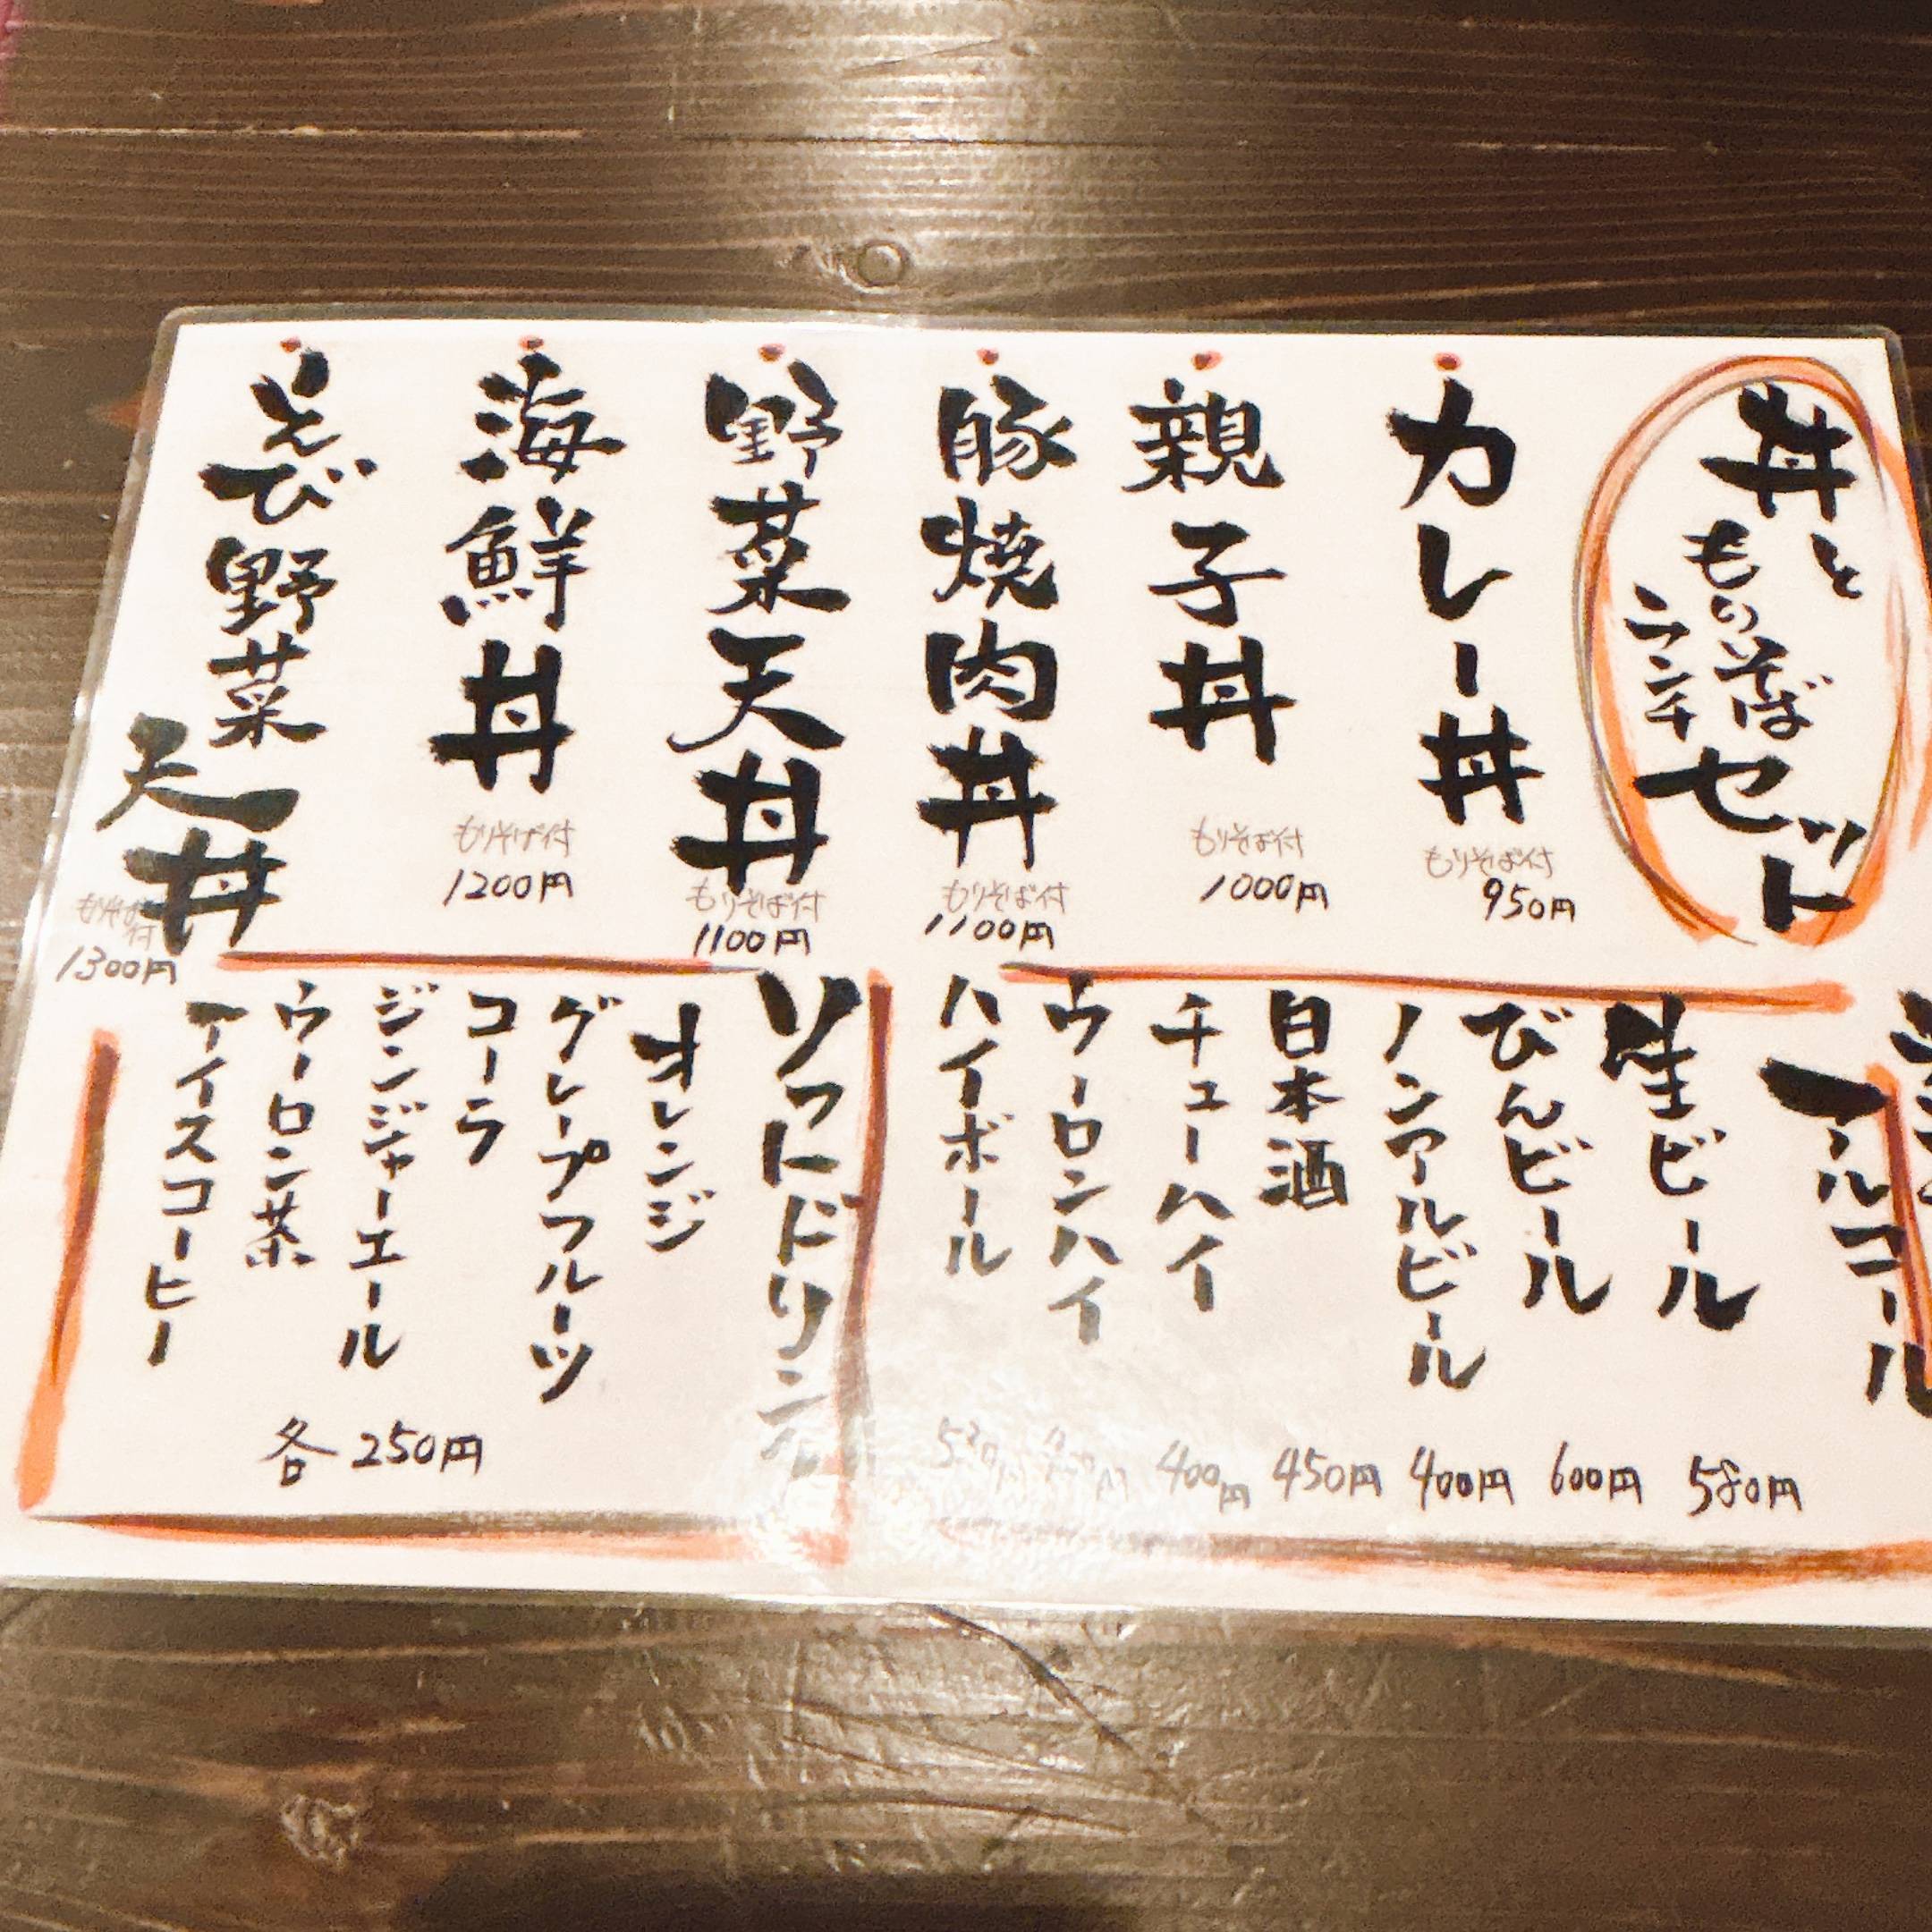 丼と
もりそば
ランチ
セット
カレー丼
もりそば付
950円
親子丼
もりそば付
1000円
豚焼肉丼
もりそば付
1100円
野菜天丼
もりそば付
1100円
海鮮丼
もりそば付
1200円
えび野菜
天丼
もりそば
付
1300円
アルコール
生ビール
580円
びんビール
600円
ノンアルビール
400円
日本酒
450円
チューハイ
400円
ウーロンハイ
ハイボール
ソフトドリンク
オレンジ
グレープフルーツ
コーラ
ジンジャーエール
ウーロン茶
アイスコーヒー
各250円